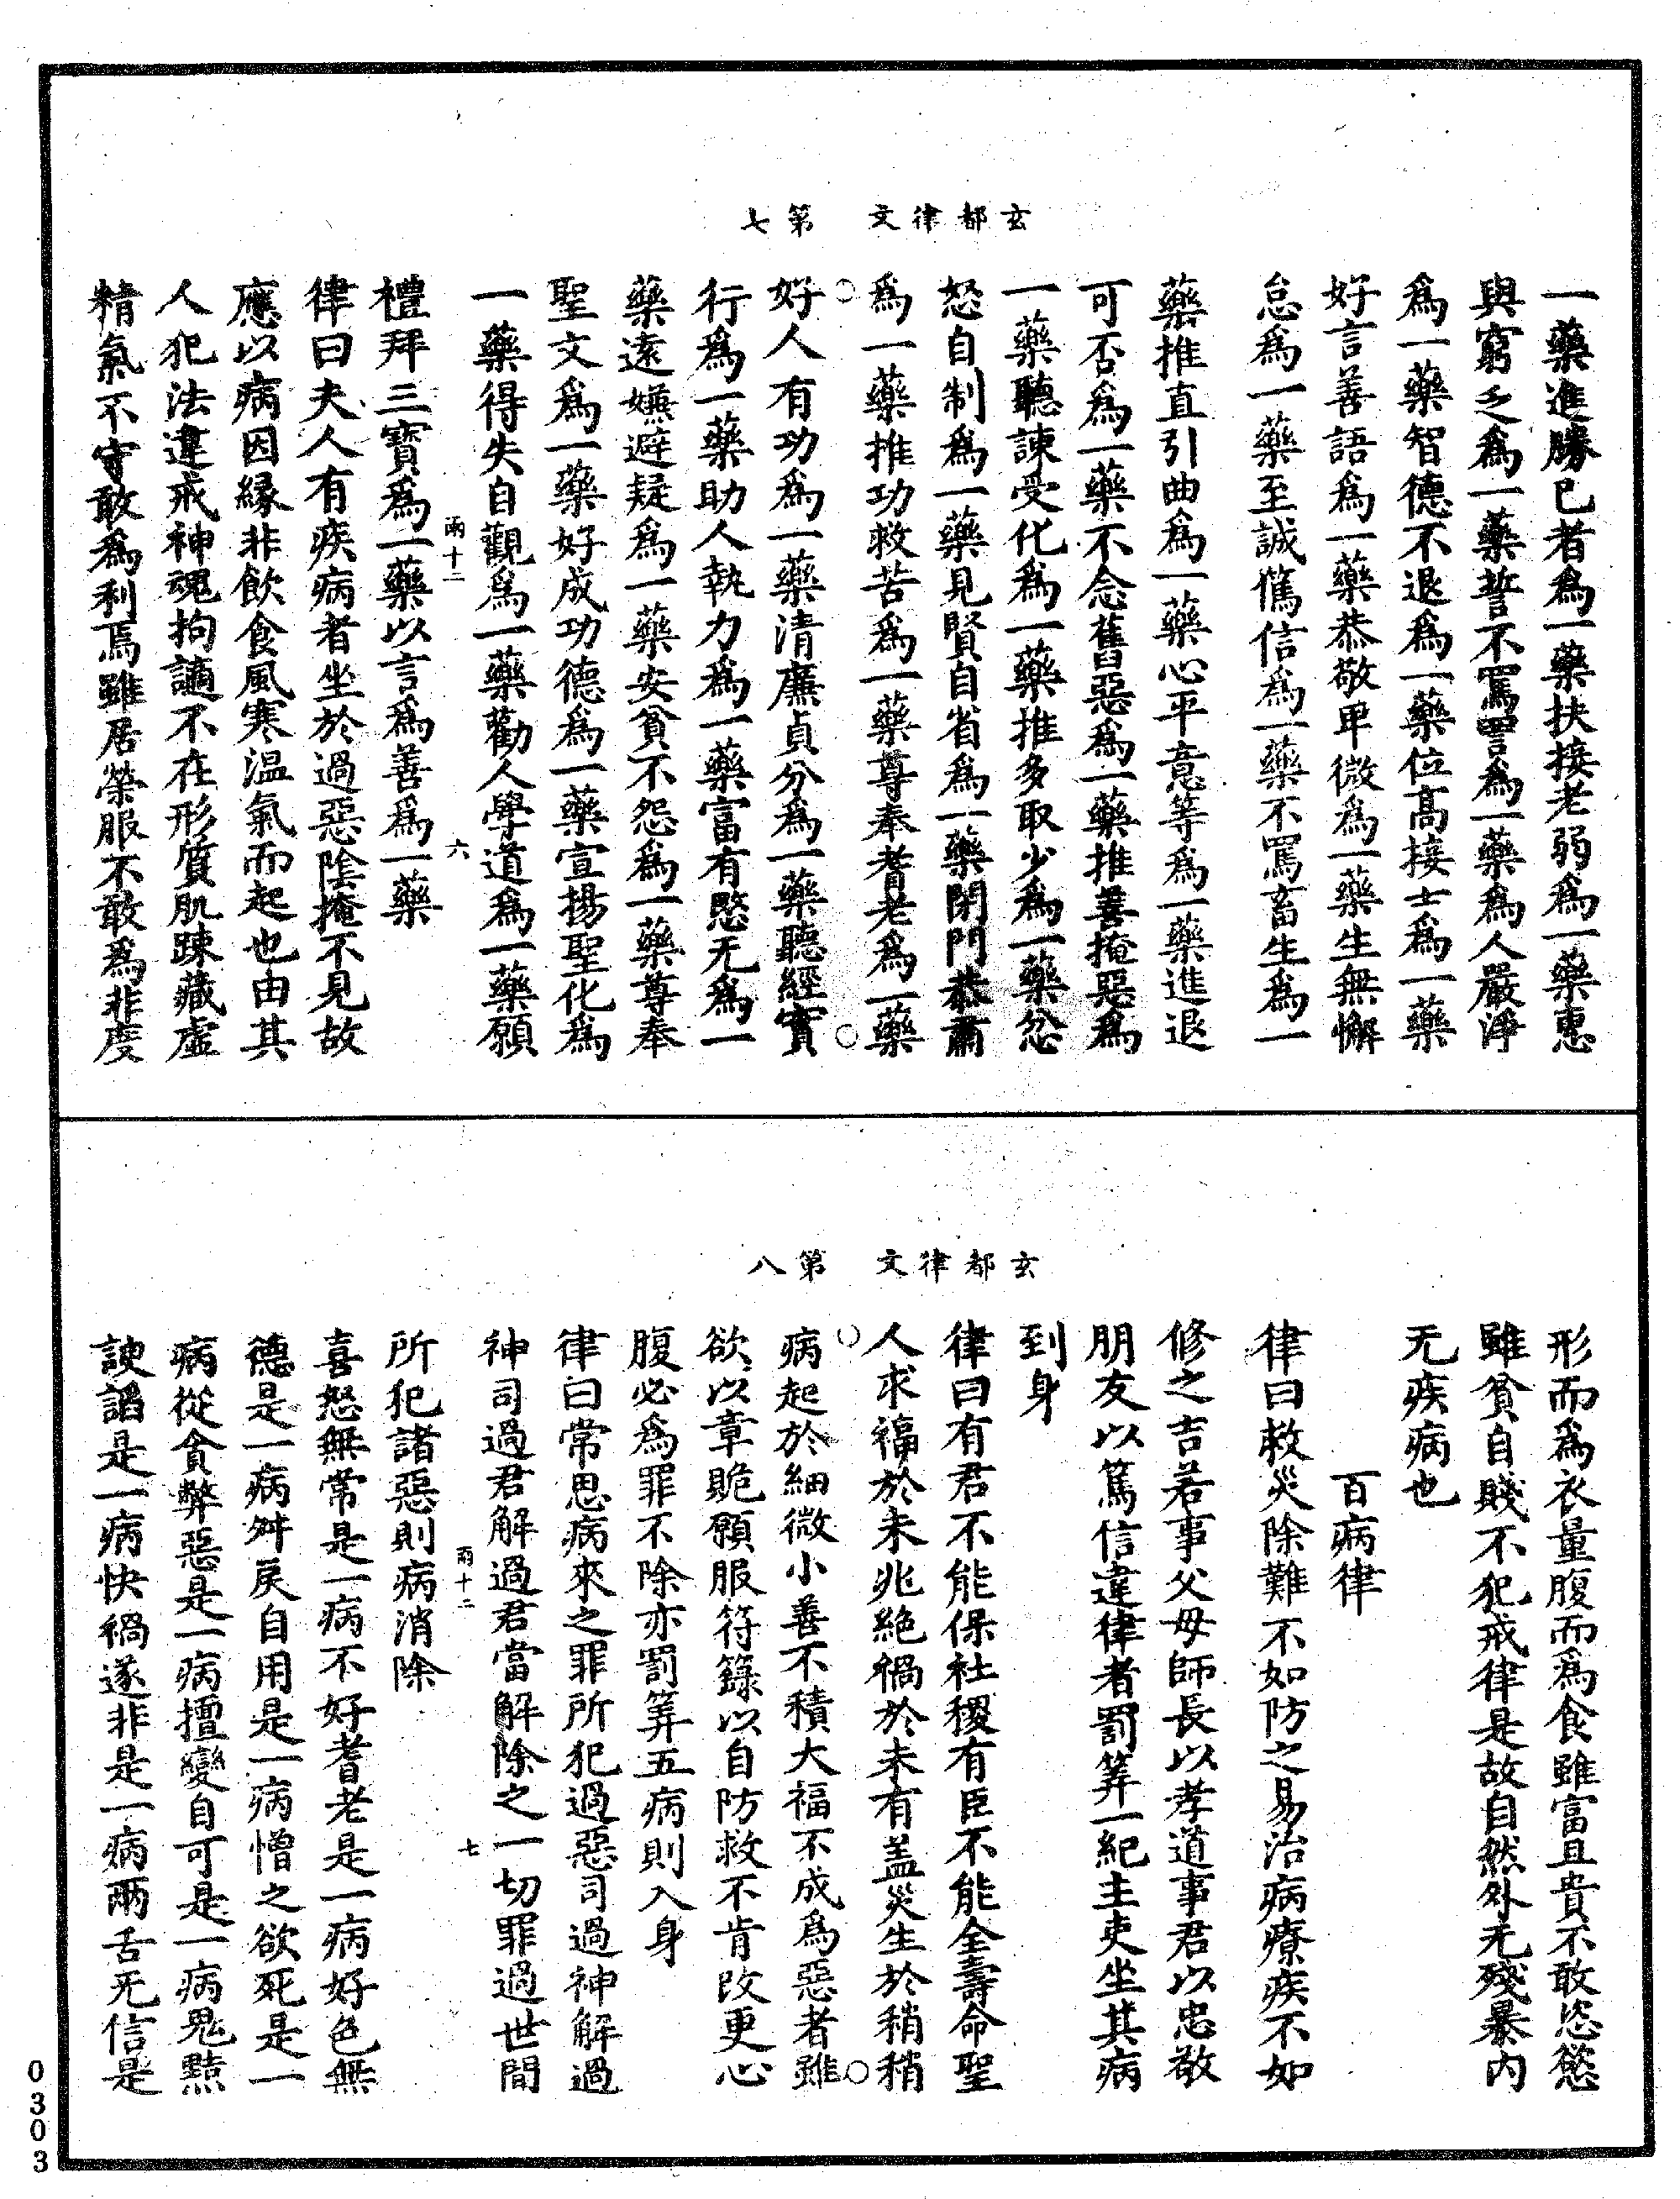 玄都律文　第七
一藥進勝己者爲一藥扶接老弱爲一藥惠
與窮乏爲一藥誓不罵詈爲一藥爲人嚴淨
爲一藥智德不退爲一藥位高接士爲一藥
好言善語爲一藥恭敬卑微爲一藥生無懈
怠爲一藥至誠篤信爲一藥不罵畜生爲一
藥推直引曲爲一藥心平意等爲一藥進退
可否爲一藥不念舊惡爲一藥推善掩惡爲
一藥聽諫受化爲一藥推多取少爲一藥忿
怒自制爲一藥見賢自省爲一藥閉門恭肅
爲一藥推功救苦爲一藥尊奉耆老爲一藥
好人有功爲一藥清廉貞分爲一藥聽經實
行爲一藥助人執力爲一藥富有愍无爲一
藥遠嫌避疑爲一藥安貧不怨爲一藥尊奉
聖文爲一藥好成功德爲一藥宣揚聖化爲
一藥得失自觀爲一藥勸人學道爲一藥願
雨十二　六
禮拜三寶爲一藥以言爲善爲一藥
律曰夫人有疾病者坐於過惡陰掩不見故
應以病因緣非飲食風寒温氣而起也由其
人犯法違戒神魂拘謫不在形質肌踈藏虛
精氣不守敢爲利焉雖居榮服不敢爲非度
玄都律文　第八
形而爲衣量腹而爲食雖富且貴不敢恣慾
雖貧自賤不犯戒律是故自然外无殘暴內
无疾病也
百病律
律曰救災除難不如防之易治病療疾不如
修之吉若事父母師長以孝道事君以忠敬
朋友以篤信違律者罰筭一紀主吏坐其病
到身
律曰有君不能保社稷有臣不能全壽命聖
人求福於未兆絶禍於未有盖災生於稍稍
病起於細微小善不積大福不成爲惡者雖
欲以章賧願服符籙以自防救不肯改更心
腹必爲罪不除亦罰筭五病則入身
律曰常思病來之罪所犯過惡司過神解過
神司過君解過君當解除之一切罪過世間
雨十二　七
所犯諸惡則病消除
喜怒無常是一病不好耆老是一病好色無
德是一病舛戾自用是一病憎之欲死是一
病從貪弊惡是一病擅變自可是一病鬼黠
諛諂是一病快禍遂非是一病兩舌无信是
0303